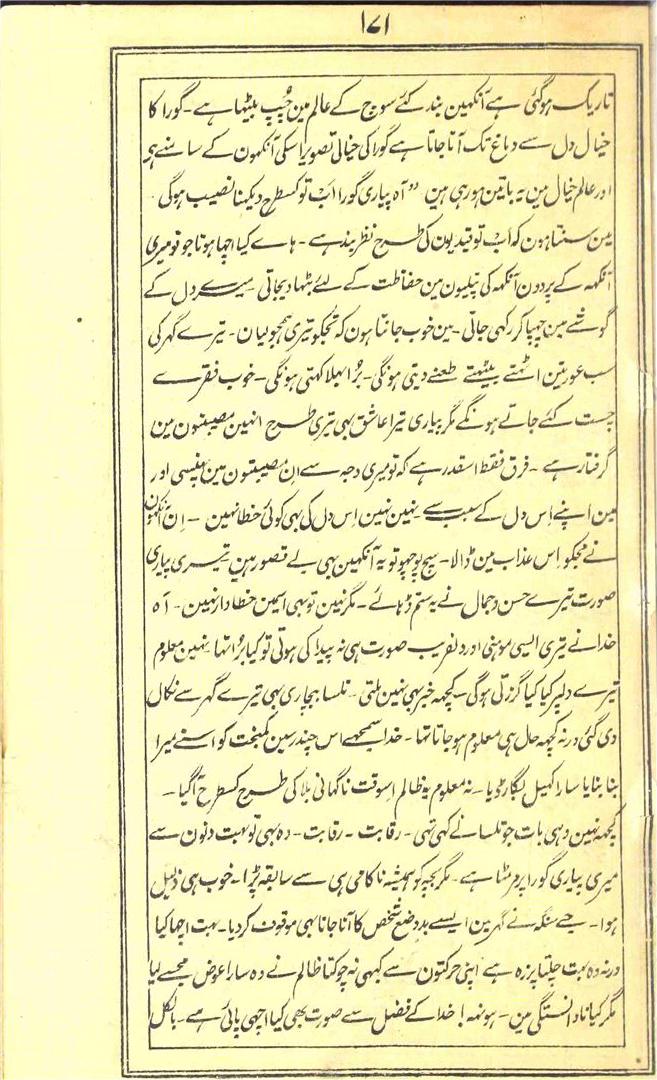 ۱۷۱
تاریک ہوگئی ہے آنکہین بند کئے سوچ کے عالم مین چُپ بیٹہا ہے۔ گورا کا
خیال دل سے دماغ تک آتا جاتا ہے گورا کی خیالی تصویر اسکی آنکہون کے سامنے ہر
اور عالم خیال مین یہ باتین ہورہی ہین ’’ آہ پیاری گورا اب تو کسطرح دیکہنا نصیب ہوگی۔
مین سنتا ہون کہ اَب تو قیدیون کی طرح نظربند ہے۔ ہاے کیا اچہا ہوتا جو تو میری
آنکہہ کے پردون آنکہہ کی پتلیون مین حفاظت کے لئے بٹہا دیجاتی۔ میرے دل کے
گوشے مین چہپا کر رکہی جاتی۔ مین خوب جانتا ہون کہ تجکو تیری ہمجولیان۔ تیرے گہر کی
سب عورتین اٹہتے بیٹہتے طعنے دیتی ہونگی۔ بُرا بہلا کہتی ہونگی۔ خوب فقرے
چست کئے جاتے ہونگے مگر پیاری تیرا عاشق بہی تیری طرح انہین مصیبتون مین
گرفتار ہے۔ فرق فقط اسقدر ہے کہ تو میری وجہ سے ان مصیبتون مین پہنسی اور
مین اپنے اِس دل کے سبب سے نہین نہین اِس دل کی بہی کوئی خطا نہین۔ اِن آنکہون
نے مجکو اِس عذاب مین ڈالا۔ سچ پوچہو تو یہ آنکہین بہی بے قصور ہین۔ تیری پیاری
صورت تیرے حسن و جمال نے یہ ستم ڈہائے۔ مگر نہین تو بہی اسمین خطاوار نہین۔ آہ
خدا نے تیری ایسی موہنی اور دلفریب صورت ہی نہ پیدا کی ہوتی تو کیا بُرا تہا نہین معلوم
تیرے دلپر کیا کیا گزرتی ہوگی۔ کچہہ خبر بہی نہین ملتی۔ تلسا بیچاری بہی تیرے گہر سے نکال
دی گئی ورنہ کچہہ حال ہی معلوم ہوجاتا تہا۔ خدا سمجہے اس چندرسین کمبخت کو اسنے میرا
بنا بنایا سارا کہیل بگاڑ دیا۔ نہ معلوم یہ ظالم اسوقت ناگہانی بلا کی طرح کسطرح آگیا۔
کچہہ نہین وہی بات جو تلسا نے کہی تہی۔ رقابت۔ رقابت۔ وہ بہی تو بہت دنون سے
میری پیاری گورا پر مرمٹا ہے۔ مگر بچہ کو ہمیشہ ناکامی ہی سے سابقہ پڑا۔ خوب ہی ذلیل
ہوا۔ جے سنگہ نے گہر مین ایسے بدوضع شخص کا آنا جانا بہی موقوف کردیا۔ بہت اچہا کیا
ورنہ وہ بہت چلتا پرزہ ہے اپنی حرکتون سے کبہی نہ چوکتا ظالم نے وہ سارا عوض مجہسے لیا
مگر کیا نادانستگی مین۔ ہونہہ! خدا کے فضل سے صورت بہی کیا اچہی پائی ہے۔ بالکل